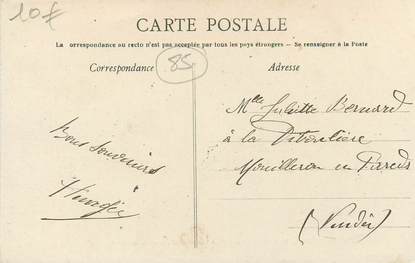 10€
CARTE POSTALE
La correspondance au recto n'est pas acceptée par tous les pays étrangers — Se renseigner à la Poste
Correspondance
85
Adresse
Mlle Juliette Bernard
à la
Mouilleron en Pareds
(Vendée)
Bons Souvenirs